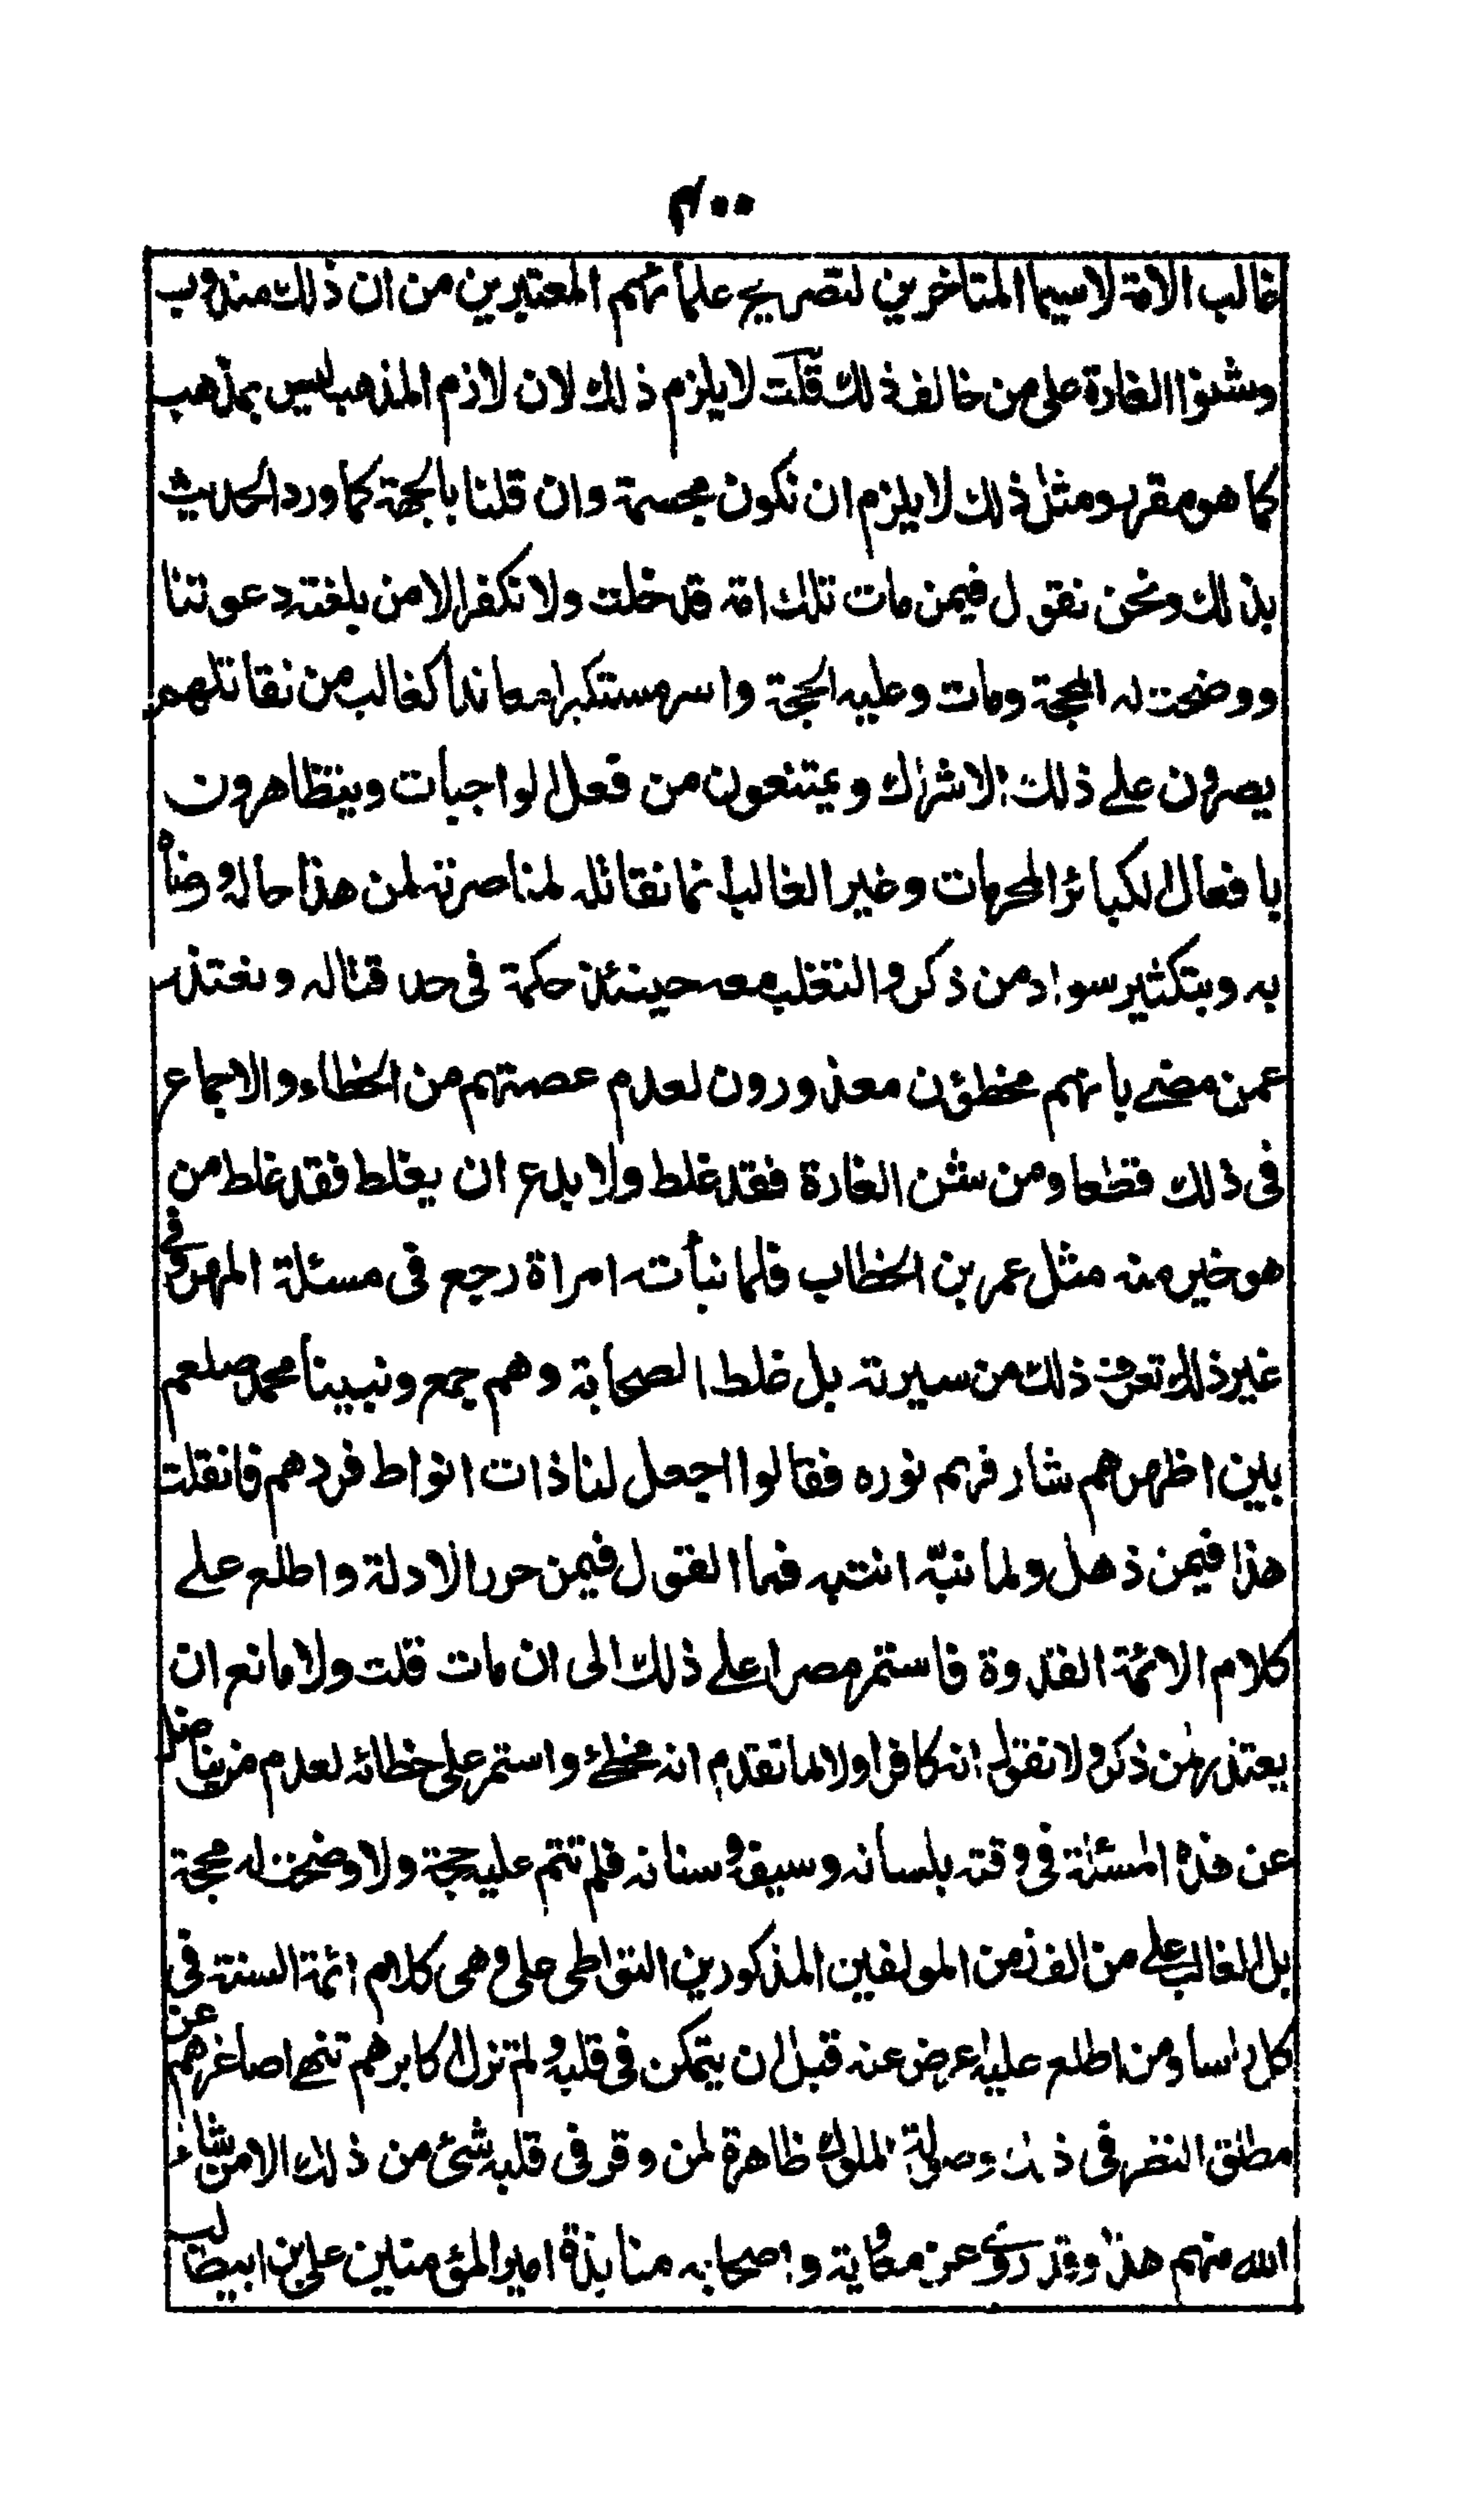 ٣٠٠
غالب الامة لاسيما المتاخرين لتصريح علمائهم المعتبرين من ان ذلك مندوب
وشنوا الغارة على من خالف ذلك قلت لا يلزم ذلك لان لازم المذهب ليس بمذهب
كما هو مقرر ومثل ذلك لا يلزم ان نكون مجسمة وان قلنا بالجهة كما ورد الحديث
بذلك ونحن نقول فيمن مات تلك امة قد خلت ولا نكفر الا من بلغته دعوتنا
ووضحت له المحجة ومات وعليه الحجة واسر مستكبرا معاندا كغالب من نقاتلهم
يصرون على ذلك الاشراك ويمتنعون من فعل الواجبات ويتظاهرون
بافعال الكبائر المحرمات وغير الغالب انما نقاتله لمناصرته لمن هذا حاله ورضاه
به وبتكثير سواد من ذكر والتغلب معه حينئذ حكمة في حد قتاله ونعتذر
عمن مضى بانهم مخطؤن معذورون لعدم عصمتهم من الخطاء والاجماع
في ذلك قطعا ومن شن الغارة فقد غلط ولا بدع ان يغلط فقد غلط من
هو خير منه مثل عمر بن الخطاب فلما نبأته امراة رجع في مسئلة المهر وفي
غير ذلك تعرف ذلك من سيرته بل غلط الصحابة وهم جمع ونبينا محمد صلعم
بين اظهرهم سار فيهم نوره فقالوا اجعل لنا ذات انواط فردهم فان قلت
هذا فيمن ذهل ولما نبّه انتبه فما القول فيمن حرر الادلة واطلع على
كلام الائمة القدوة فاستمر مصرا على ذلك الى ان مات قلت ولا مانع ان
يعتذر لمن ذكر ولا نقول انه كافر اولا لما تقدم انه مخطئ واستمر على خطائه لعدم من يناضل
عن هذه المسئلة في وقته بلسانه وسيفه وسنانه فلم تقم عليه حجة ولا وضحت له محجة
بل الغالب على من الف من المولفين المذكورين التواطى على هجر كلام ائمة السنة في
كل راسا ومن اطلع عليه اعرض عنه قبل ان يتمكن في قلبه ولم تزل اكابرهم تنهى اصاغرهم عن
مطلق النظر في ذلك وصولة الملوك ظاهرة لمن وقر في قلبه شئ من ذلك الا من شاء
الله منهم هذا وقد رؤى عن معاية واصحابه منابذة امير المؤمنين علي بن ابيطالب